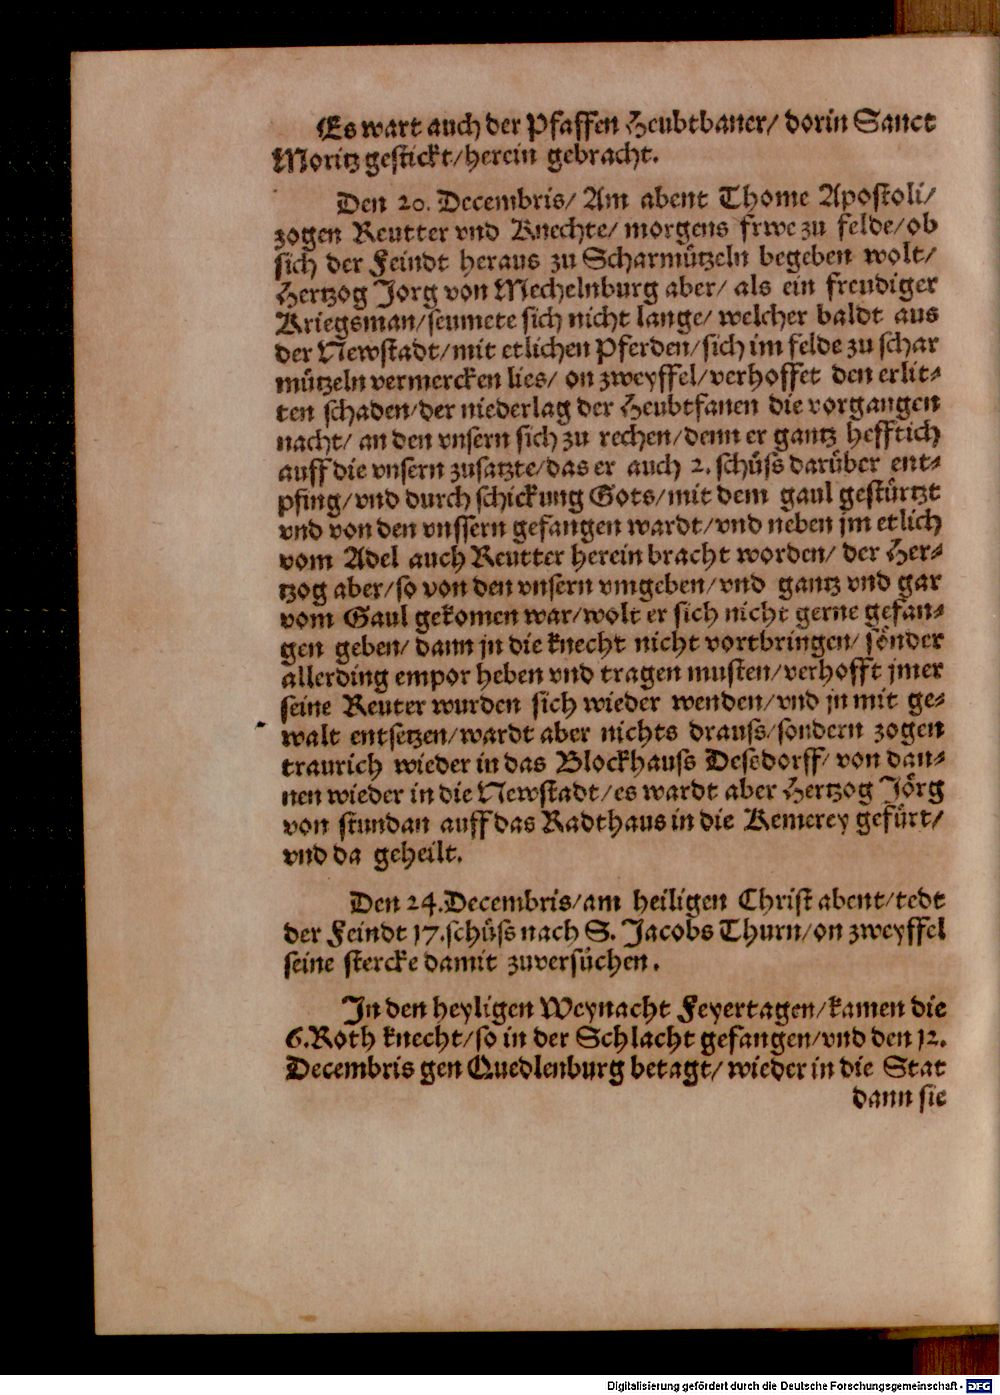 Es wart auch der Pfaffen Heubtbaner/ dorin Sanct
Moritz gestickt/herein gebracht.
Den 20. Decembris/ Am abent Thome Apostoli/
zogen Reutter vnd Knechte/ morgens frwe zu felde/ob
sich der Feindt heraus zu Scharmützeln begeben wolt/
Hertzog Jorg von Mechelnburg aber/ als ein freudiger
Kriegsman/seumete sich nicht lange/ welcher baldt aus
der Newstadt/mit etlichen Pferden/sich im felde zu schar
mützeln vermercken lies/ on zweyffel/verhoffet den erlit-
ten schaden/der niederlag der Heubtfanen die vorgangen
nacht/ an den vnsern sich zu rechen/denn er gantz hefftich
auff die vnsern zusatzte/das er auch 2. schüss darüber ent-
pfing/vnd durch schickung Gots/mit dem gaul gestürtzt
vnd von den vnssern gefangen wardt/vnd neben jm etlich
vom Adel auch Reutter herein bracht worden/ der Her-
tzog aber/so von den vnsern vmgeben/vnd gantz vnd gar
vom Gaul gekomen war/wolt er sich nicht gerne gefan-
gen geben/ dann jn die knecht nicht vortbringen/ sonder
allerding empor heben vnd tragen musten/verhofft jmer
seine Reuter wurden sich wieder wenden/vnd jn mit ge-
walt entsetzen/wardt aber nichts drauss/sondern zogen
traurich wieder in das Blockhauss Desedorff/ von dan-
nen wieder in die Newstadt/es wardt aber Hertzog Jörg
von stundan auff das Radthaus in die Kemerey gefürt/
vnd da geheilt.
Den 24.Decembris/am heiligen Christ abent/tedt
der Feindt 17.schüss nach S. Jacobs Thurn/on zweyffel
seine stercke damit zuversüchen.
In den heyligen Weynacht Feyertagen/kamen die
6.Roth knecht/so in der Schlacht gefangen/vnd den 12.
Decembris gen Quedlenburg betagt/ wieder in die Stat
dann sie
Digitalisierung gefördert durch die Deutsche Forschungsgemeinschaft - DFG